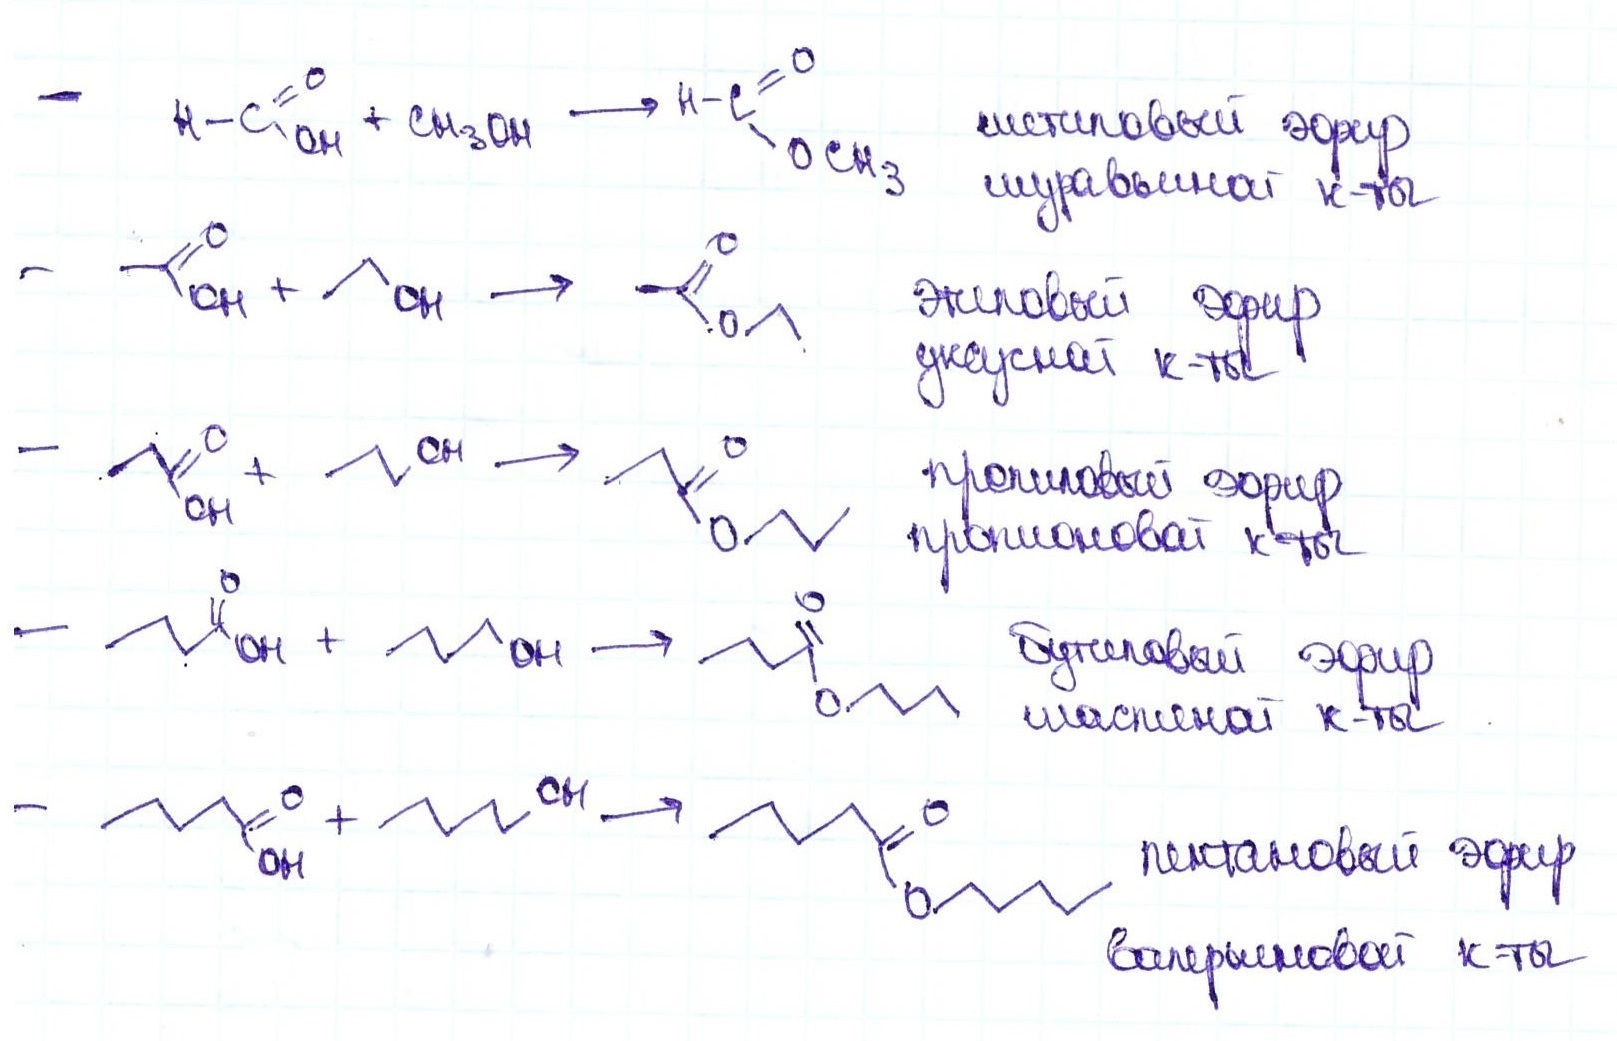 H-C=O OH + CH3OH → H-C=O OCH3 метиловый эфир
муравьиной к-ты
O OH + OH → O O этиловый эфир
уксусной к-ты
O OH + OH → O O пропиловый эфир
пропионовой к-ты
O OH + OH → O O бутиловый эфир
масляной к-ты
O OH + OH → O O пентановый эфир
валерьяновой к-ты